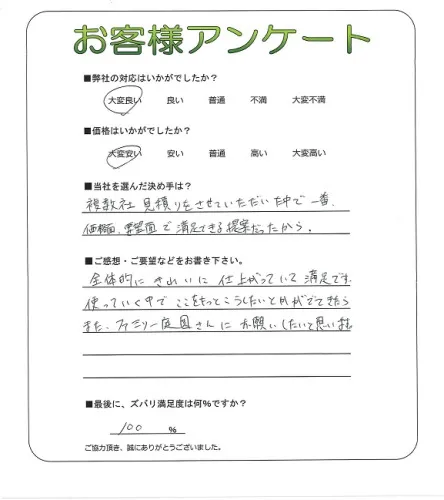 お客様アンケート
■弊社の対応はいかがでしたか?
大変良い 良い 普通 不満 大変不満
■価格はいかがでしたか?
大変安い 安い 普通 高い 大変高い
■当社を選んだ決め手は?
複数社 見積りをさせていただいた中で一番、
価格面、要望面で満足できる提案だったから。
■ご感想・ご要望などをお書き下さい。
全体的にきれいに仕上がっていて満足です。
使っていく中でここをもっとこうしたいとかがでてきたら
また、ファミリー庭園さんにお願いしたいと思います
■最後に、ズバリ満足度は何%ですか?
100 %
ご協力頂き、誠にありがとうございました。